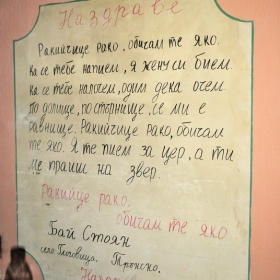 Наздраве
Ракийчице рако, обичам те яко.
Ка се тебе напием, я жену си бием.
Ка се тебе налочем, одим дека очем.
По долище, по стърнище, се ми е
равнище. Ракийчице рако, обичам
те яко. Я те пием за цер, а ти
ме праиш на звер.
Ракийце рако.
обичам те яко
Бай Стоян
село Глоговица. Трънско.